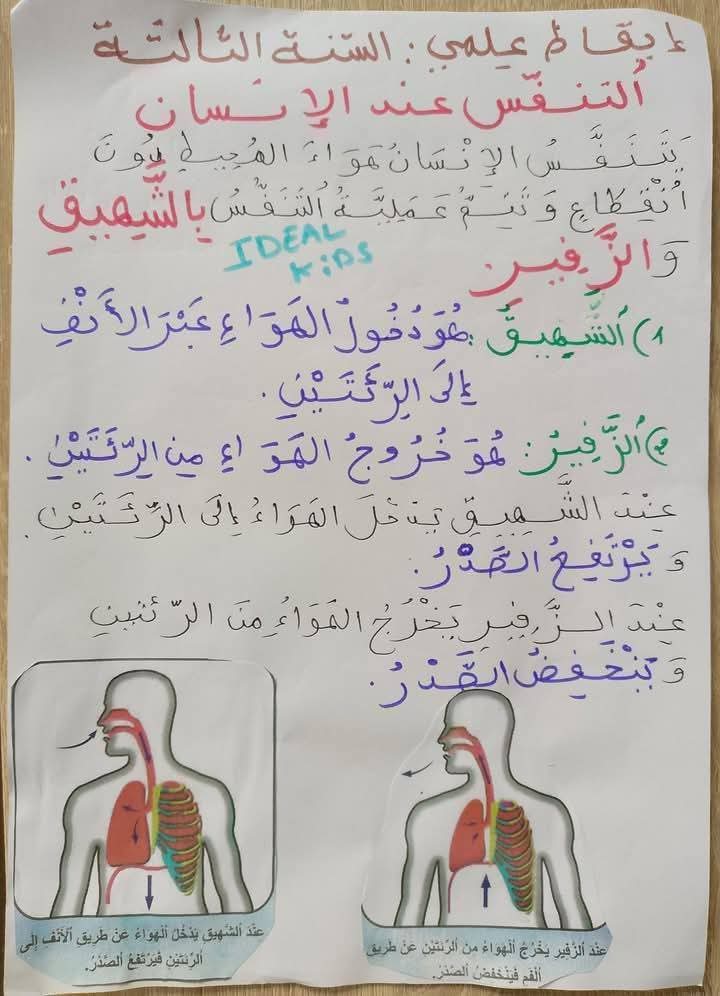 إيقاظ علمي: السّنة الثالثة
اُلتنفّس عند الإنسان
يَتَنَفَّسُ الإِنْسَانُ هَوَاءَ المُحِيطِ بِدُونَ
اُنْقِطَاعٍ وَتَتِمُّ عَمَلِيَّةُ اُلتَّنَفُّسُ بِالشَّهِيقِ
وَالزَّفِيرِ
IDEAL
KiDS
1) اُلشَّهِيقُ: هُوَ دُخُولُ الهَوَاءِ عَبْرَ الأَنْفِ
إِلَى الرِّئَتَيْنِ.
2) اُلزَّفِيرُ: هُوَ خُرُوجُ الهَوَاءِ مِن الرِّئَتَيْنِ.
عِنْدَ الشَّهِيقِ يَدْخُلُ الهَوَاءُ إِلَى الرِّئَتَيْنِ.
وَ يَرْتَفِعُ الصَّدْرُ.
عِنْدَ الزَّفِيرِ يَخْرُجُ الهَوَاءُ مِنَ الرّئتينِ
وَ يَنْخَفِضُ الصَّدْرُ.
عِنْدَ اُلشَّهِيقِ يَدْخُلُ اُلْهَوَاءُ عَنْ طَرِيقِ اُلْأَنْفِ إِلَى
اُلرِّئَتَيْنِ فَيَرْتَفِعُ اُلصَّدْرُ.
عِنْدَ اُلزَّفِيرِ يَخْرُجُ اُلْهَوَاءُ مِنَ اُلرِّئَتَيْنِ عَنْ طَرِيقِ
اُلْفَمِ فَيَنْخَفِضُ اُلصَّدْرُ.